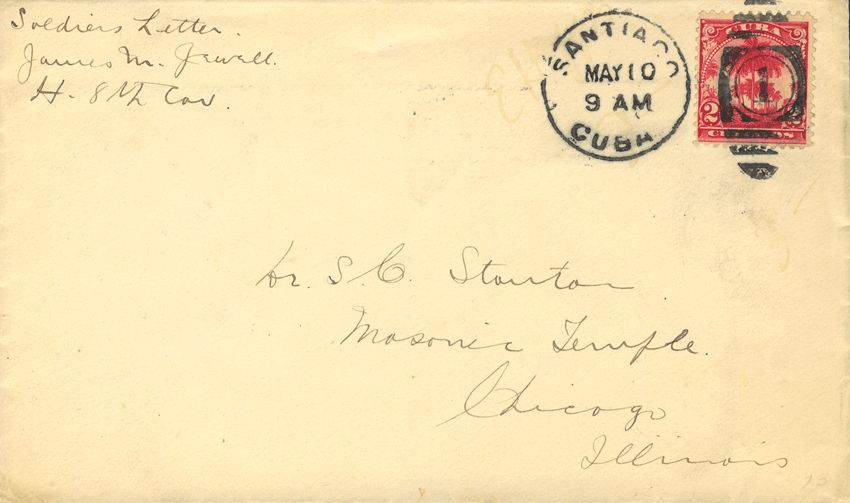 Soldiers Letter.
James M. Jewell.
H. 8th Cav.
SANTIAGO
MAY 10
9 AM
CUBA
CUBA
1
2
CENTAVOS
Dr. S. C. Stanton
Masonic Temple.
Chicago
Illinois